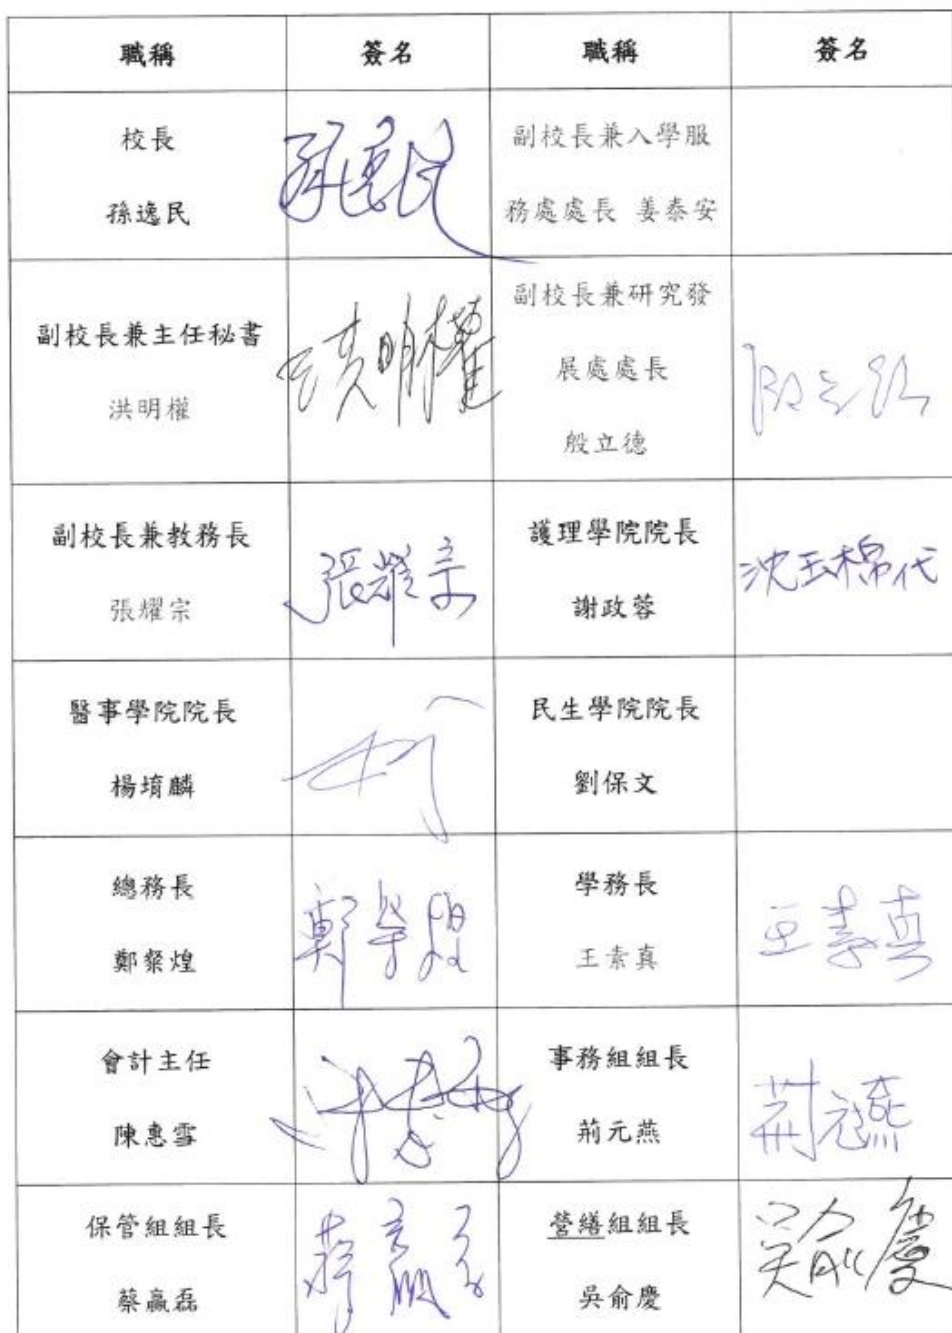 職稱 簽名 職稱 簽名
校長
孫逸民
孫逸民
副校長兼入學服
務處處長 姜泰安
副校長兼主任秘書
洪明權
洪明權
副校長兼研究發
展處處長
殷立德
副校長兼教務長
張耀宗
張耀宗
護理學院院長
謝政蓉
沈玉棉代
醫事學院院長
楊堉麟
民生學院院長
劉保文
總務長
鄭粲煌
學務長
王素真
王素真
會計主任
陳惠雪
事務組組長
荊元燕
荊元燕
保管組組長
蔡贏磊
營繕組組長
吳俞慶
吳俞慶